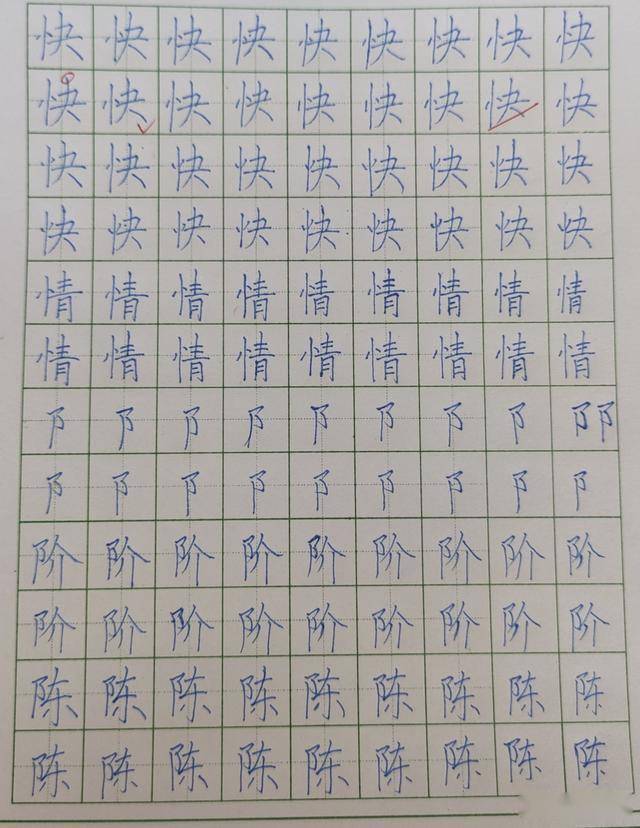 快快快快快快快快快
快快快快快快快快快
快快快快快快快快快
快快快快快快快快快
情情情情情情情情情
情情情情情情情情情
阝阝阝阝阝阝阝阝阝阝
阝阝阝阝阝阝阝阝阝
阶阶阶阶阶阶阶阶阶
阶阶阶阶阶阶阶阶阶
陈陈陈陈陈陈陈陈陈
陈陈陈陈陈陈陈陈陈